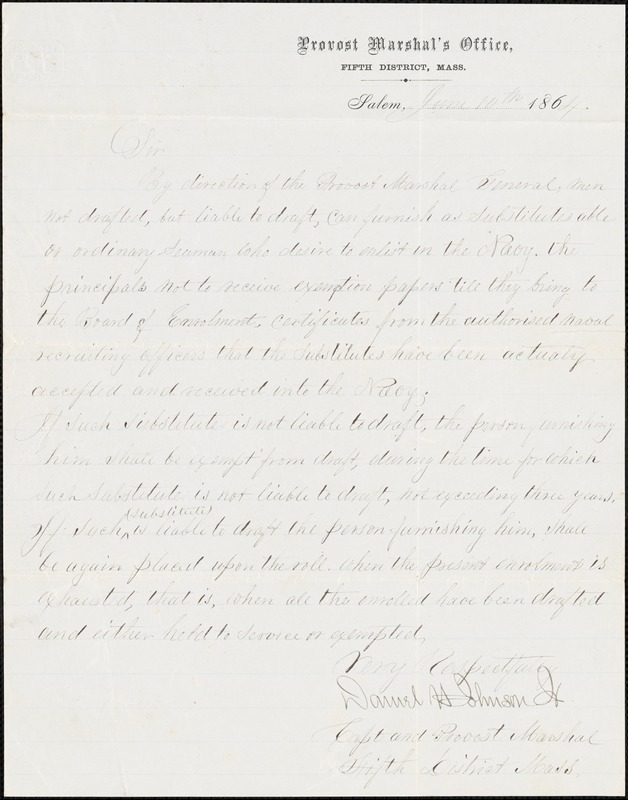 Provost Marshal's Office,
FIFTH DISTRICT, MASS.
Salem, June 10th 1864.
Sir
By direction of the Provost Marshal General, men
not drafted, but liable to draft, can furnish as substitutes able
or ordinary Seaman who desire to enlist in the Navy. the
principals not to receive exemption papers till they bring to
the Board of Enrolment, certificates from the authorised naval
recruiting officers that the substitutes have been actualy
accepted and received into the Navy;
If such substitute is not liable to draft, the person furnishing
him shall be exempt from draft, during the time for which
such substitute is not liable to draft, not exceeding three years,
If such (substitute) is liable to draft the person furnishing him, shall
be again placed upon the roll. when the present enrolment is
exhausted, that is, when all the enrolled have been drafted
and either held to service or exempted,
Very Respectfully
Daniel H Johnson Jr
Capt and Provost Marshal
Fifth District Mass.